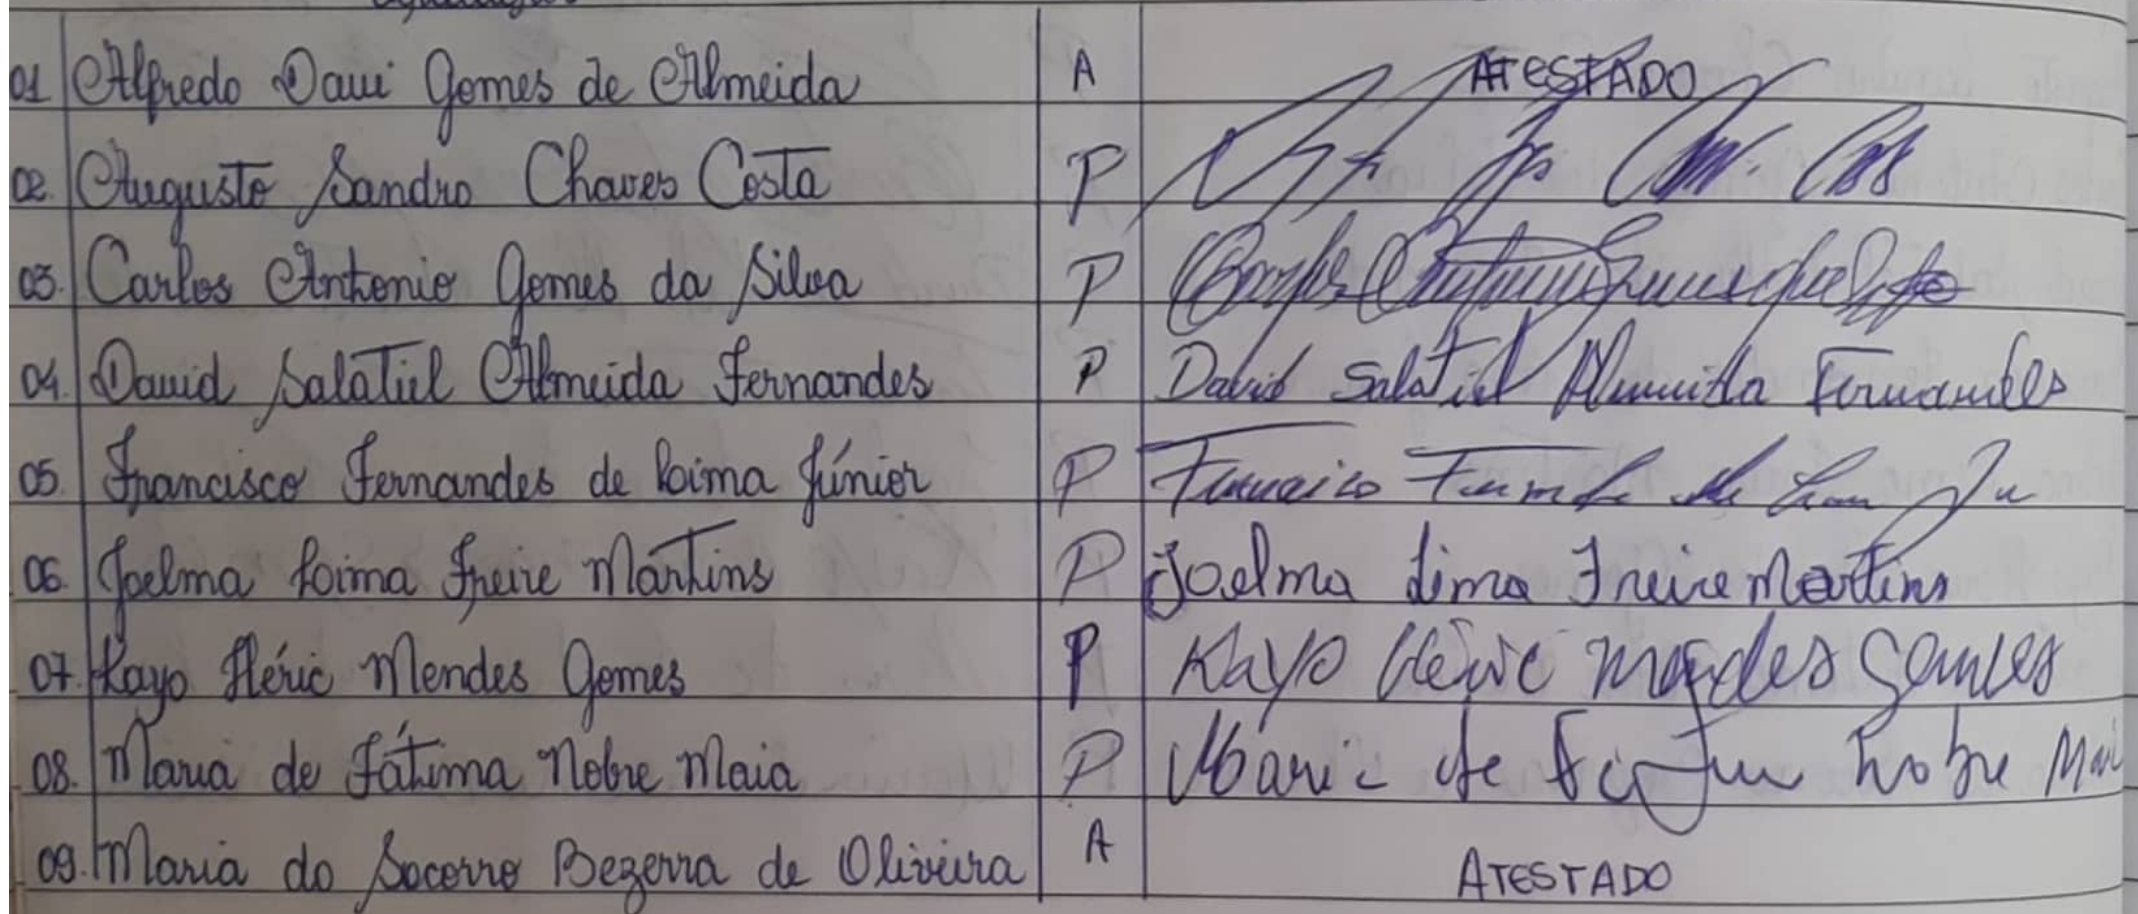 01 Alfredo Davi Gomes de Almeida A ATESTADO
02. Augusto Sandro Chaves Costa P
03. Carlos Antonio Gomes da Silva P
04. David Salatiel Almeida Fernandes P David Salatiel Almeida Fernandes
05. Francisco Fernandes de Loima Júnior P
06. Joelma Loima Freire Martins P Joelma Lima Freire Martins
07. Kayo Héric Mendes Gomes P Kayo Héric Mendes Gomes
08. Maria de Fátima Nobre Maia P Maria de Nobre Mai
09. Maria do Socorro Bezerra de Oliveira A ATESTADO